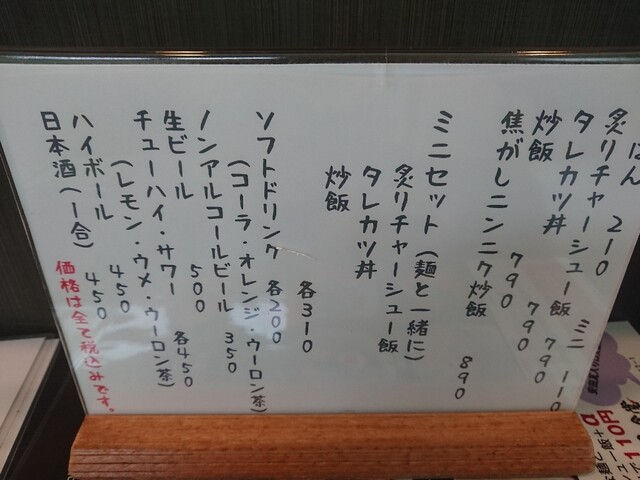 はん 210 ミニ 110
炙りチャーシュー飯 790
タレカツ丼 790
炒飯 790
焦がしニンニク炒飯 890
ミニセット(麺と一緒に)
炙りチャーシュー飯
タレカツ丼
炒飯
各310
ソフトドリンク 各200
(コーラ・オレンジ・ウーロン茶)
ノンアルコールビール 350
生ビール 500
チューハイ・サワー 各450
(レモン・ウメ・ウーロン茶)
ハイボール 450
日本酒(一合) 450
価格は全て税込みです。